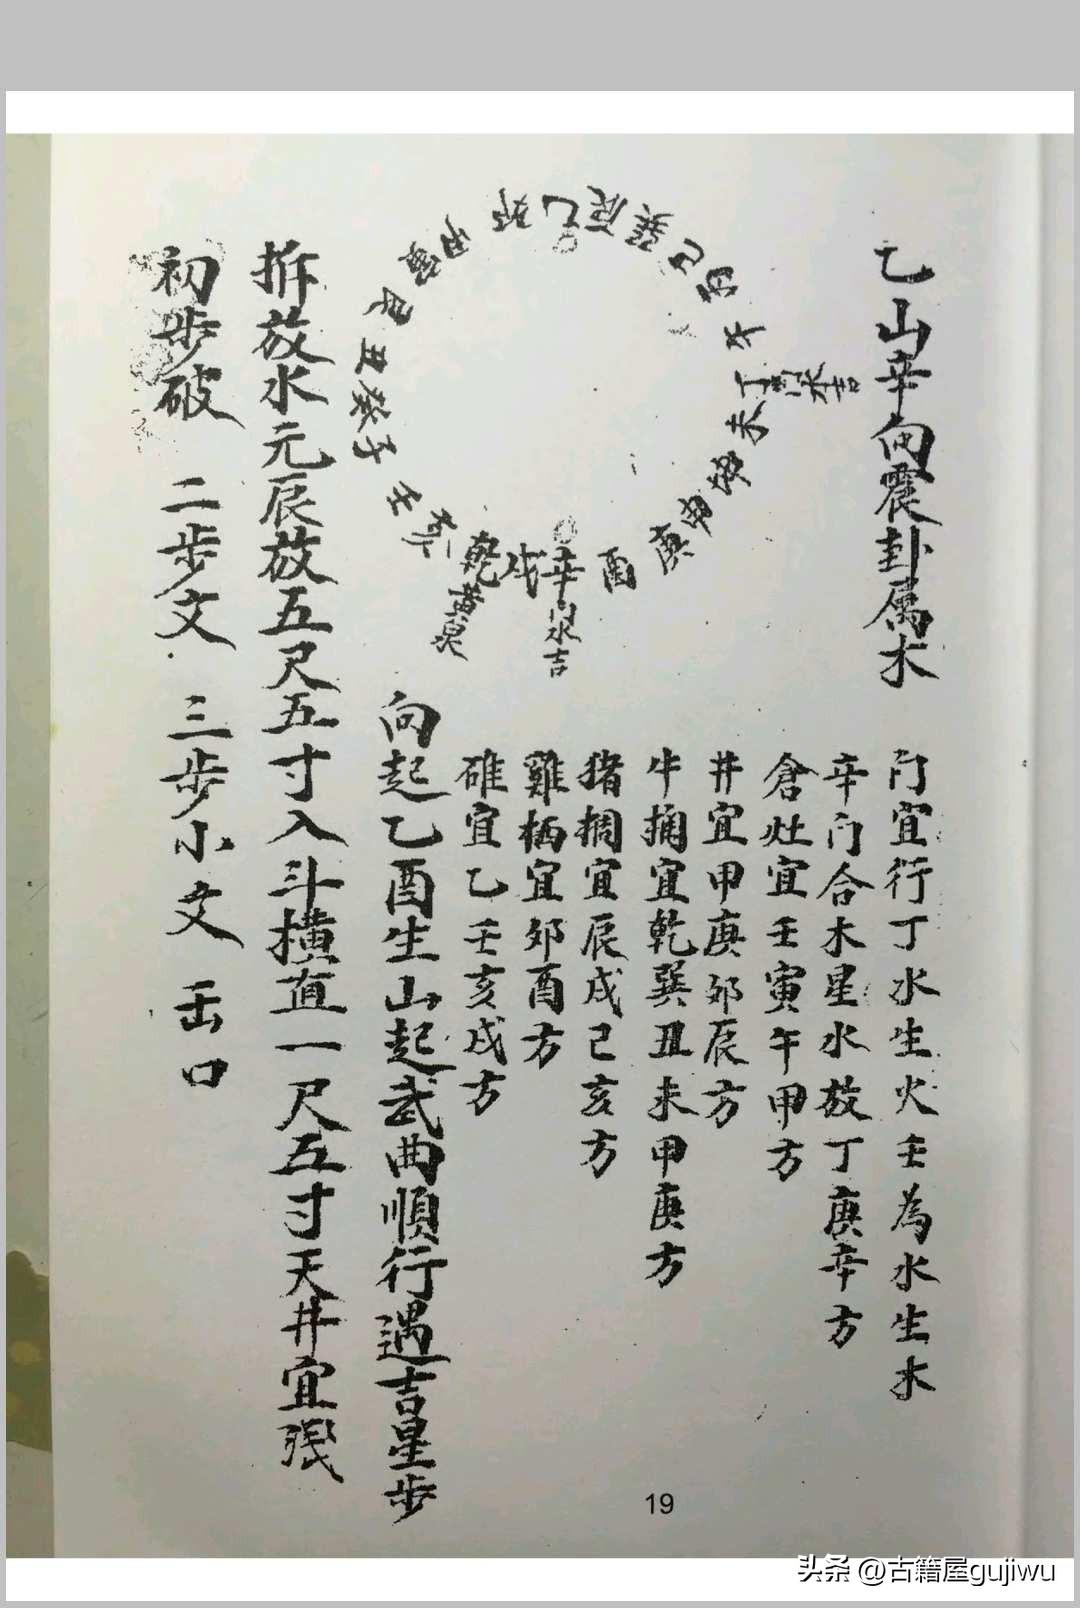 乙山辛向震卦属木
卯 乙 辰 巽 巳 丙 午 丁 未 坤 申 庚 酉 辛 戌 乾 亥 壬 子 癸 丑 艮 寅 甲
水吉
门水吉
黄泉
门宜行丁水生火壬為水生木
辛门合木星水放丁庚辛方
倉灶宜壬寅午甲方
井宜甲庚卯辰方
牛捅宜乾巽丑未甲庚方
猪捆宜辰戌已亥方
雞栖宜卯酉方
碓宜乙壬亥戌方
向起乙酉生山起武曲順行遇吉星步
拆放水元辰放五尺五寸入斗横直一尺五寸天井宜
初步破 二步文 三步小文 缶口
19
头条 @古籍屋gujiwu